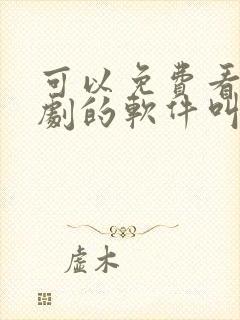 可以免費看
劇的軟件叫
虛木